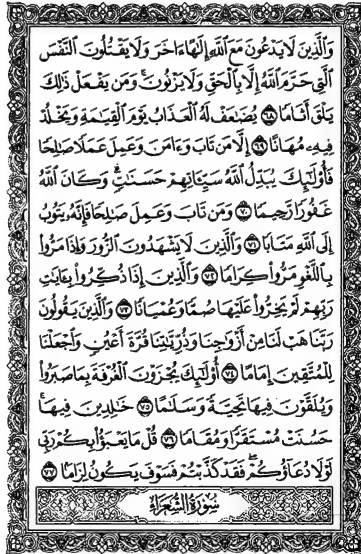 وَٱلَّذِينَ لَا يَدْعُونَ مَعَ ٱللَّهِ إِلَٰهًا ءَاخَرَ وَلَا يَقْتُلُونَ ٱلنَّفْسَ
ٱلَّتِى حَرَّمَ ٱللَّهُ إِلَّا بِٱلْحَقِّ وَلَا يَزْنُونَ ۚ وَمَن يَفْعَلْ ذَٰلِكَ
يَلْقَ أَثَامًا ٦٨ يُضَٰعَفْ لَهُ ٱلْعَذَابُ يَوْمَ ٱلْقِيَٰمَةِ وَيَخْلُدْ
فِيهِۦ مُهَانًا ٦٩ إِلَّا مَن تَابَ وَءَامَنَ وَعَمِلَ عَمَلًا صَٰلِحًا
فَأُو۟لَٰٓئِكَ يُبَدِّلُ ٱللَّهُ سَيِّـَٔاتِهِمْ حَسَنَٰتٍ ۗ وَكَانَ ٱللَّهُ
غَفُورًا رَّحِيمًا ٧٠ وَمَن تَابَ وَعَمِلَ صَٰلِحًا فَإِنَّهُۥ يَتُوبُ
إِلَى ٱللَّهِ مَتَابًا ٧١ وَٱلَّذِينَ لَا يَشْهَدُونَ ٱلزُّورَ وَإِذَا مَرُّوا۟
بِٱللَّغْوِ مَرُّوا۟ كِرَامًا ٧٢ وَٱلَّذِينَ إِذَا ذُكِّرُوا۟ بِـَٔايَٰتِ
رَبِّهِمْ لَمْ يَخِرُّوا۟ عَلَيْهَا صُمًّا وَعُمْيَانًا ٧٣ وَٱلَّذِينَ يَقُولُونَ
رَبَّنَا هَبْ لَنَا مِنْ أَزْوَٰجِنَا وَذُرِّيَّٰتِنَا قُرَّةَ أَعْيُنٍ وَٱجْعَلْنَا
لِلْمُتَّقِينَ إِمَامًا ٧٤ أُو۟لَٰٓئِكَ يُجْزَوْنَ ٱلْغُرْفَةَ بِمَا صَبَرُوا۟
وَيُلَقَّوْنَ فِيهَا تَحِيَّةً وَسَلَٰمًا ٧٥ خَٰلِدِينَ فِيهَا ۚ
حَسُنَتْ مُسْتَقَرًّا وَمُقَامًا ٧٦ قُلْ مَا يَعْبَؤُا۟ بِكُمْ رَبِّى
لَوْلَا دُعَآؤُكُمْ ۖ فَقَدْ كَذَّبْتُمْ فَسَوْفَ يَكُونُ لِزَامًا ٧٧
سُورَةُ الشُّعَرَاءِ